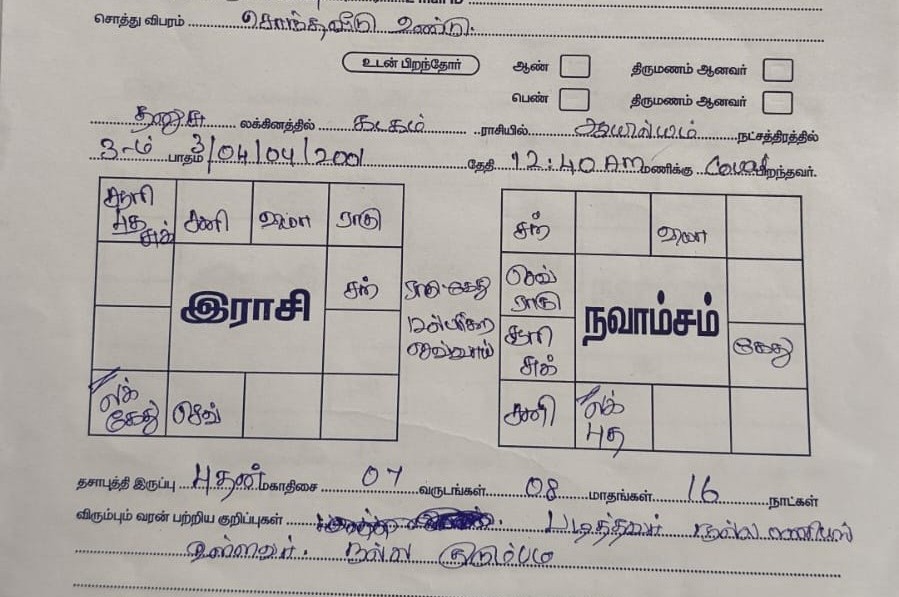 சொத்து விபரம் சொந்தவீடு உண்டு.
உடன் பிறந்தோர் ஆண் திருமணம் ஆனவர்
பெண் திருமணம் ஆனவர்
தனுசு லக்கினத்தில் கடகம் ராசியில் ஆயில்யம் நட்சத்திரத்தில்
3-ம் பாதம் 3/04/04/2001 தேதி 12:40 AM மணிக்கு பிறந்தவர்.
சூரி புத சுக் சனி குரு ராகு
சந்
இராசி
லக் கேது செவ்
ராகு-கேது
செவ்வாய்
சந் குரு
செவ் ராகு
நவாம்சம்
சூரி சுக் கேது
சனி லக் புத
தசாபுத்தி இருப்பு புதன் மகாதிசை 07 வருடங்கள் 08 மாதங்கள் 16 நாட்கள்
விரும்பும் வரன் பற்றிய குறிப்புகள் படித்தவர் நல்ல
உள்ளவர். நல்ல குடும்பம்